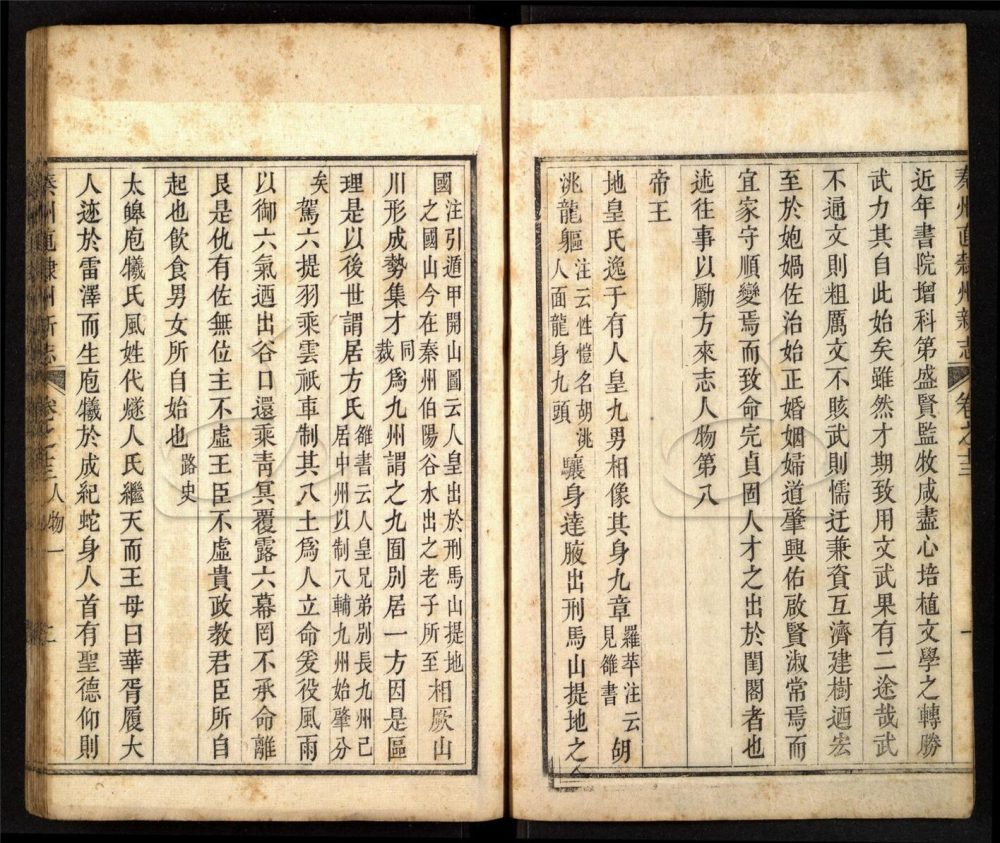 秦州直隸州新志 卷之十三 一
近年書院增科第盛賢監牧咸盡心培植文學之轉勝
武力其自此始矣雖然才期致用文武果有二途哉武
不通文則粗厲文不賅武則懦迂兼資互濟建樹迺宏
至於媊媧佐治始正婚姻婦道肇興佑啟賢淑常焉而
宜家守順變焉而致命完貞固人才之出於閨閣者也
述往事以勵方來志人物第八
帝王
地皇氏逸于有人皇九男相像其身九章羅苹注云胡見雒書
洮龍軀注云性愷名胡洮人面龍身九頭驤身達腋出刑馬山提地之
國注引遁甲開山圖云人皇出於刑馬山提地之國山今在秦州伯陽谷水出之老子所至相厥山
川形成勢集才同裁為九州謂之九囿別居一方因是區
理是以後世謂居方氏雒書云人皇兄弟別長九州己居中州以制八輔九州始肇分
矣駕六提羽乘雲祇車制其八土為人立命爰役風雨
以御六氣迺出谷口還乘青冥覆露六幕罔不承命離
艮是仇有佐無位主不虛王臣不虛貴政教君臣所自
起也飲食男女所自始也路史
太皞庖犧氏風姓代燧人氏繼天而王母曰華胥履大
人迹於雷澤而生庖犧於成紀蛇身人首有聖德仰則
秦州直隸州新志 卷之十三 人物一 二